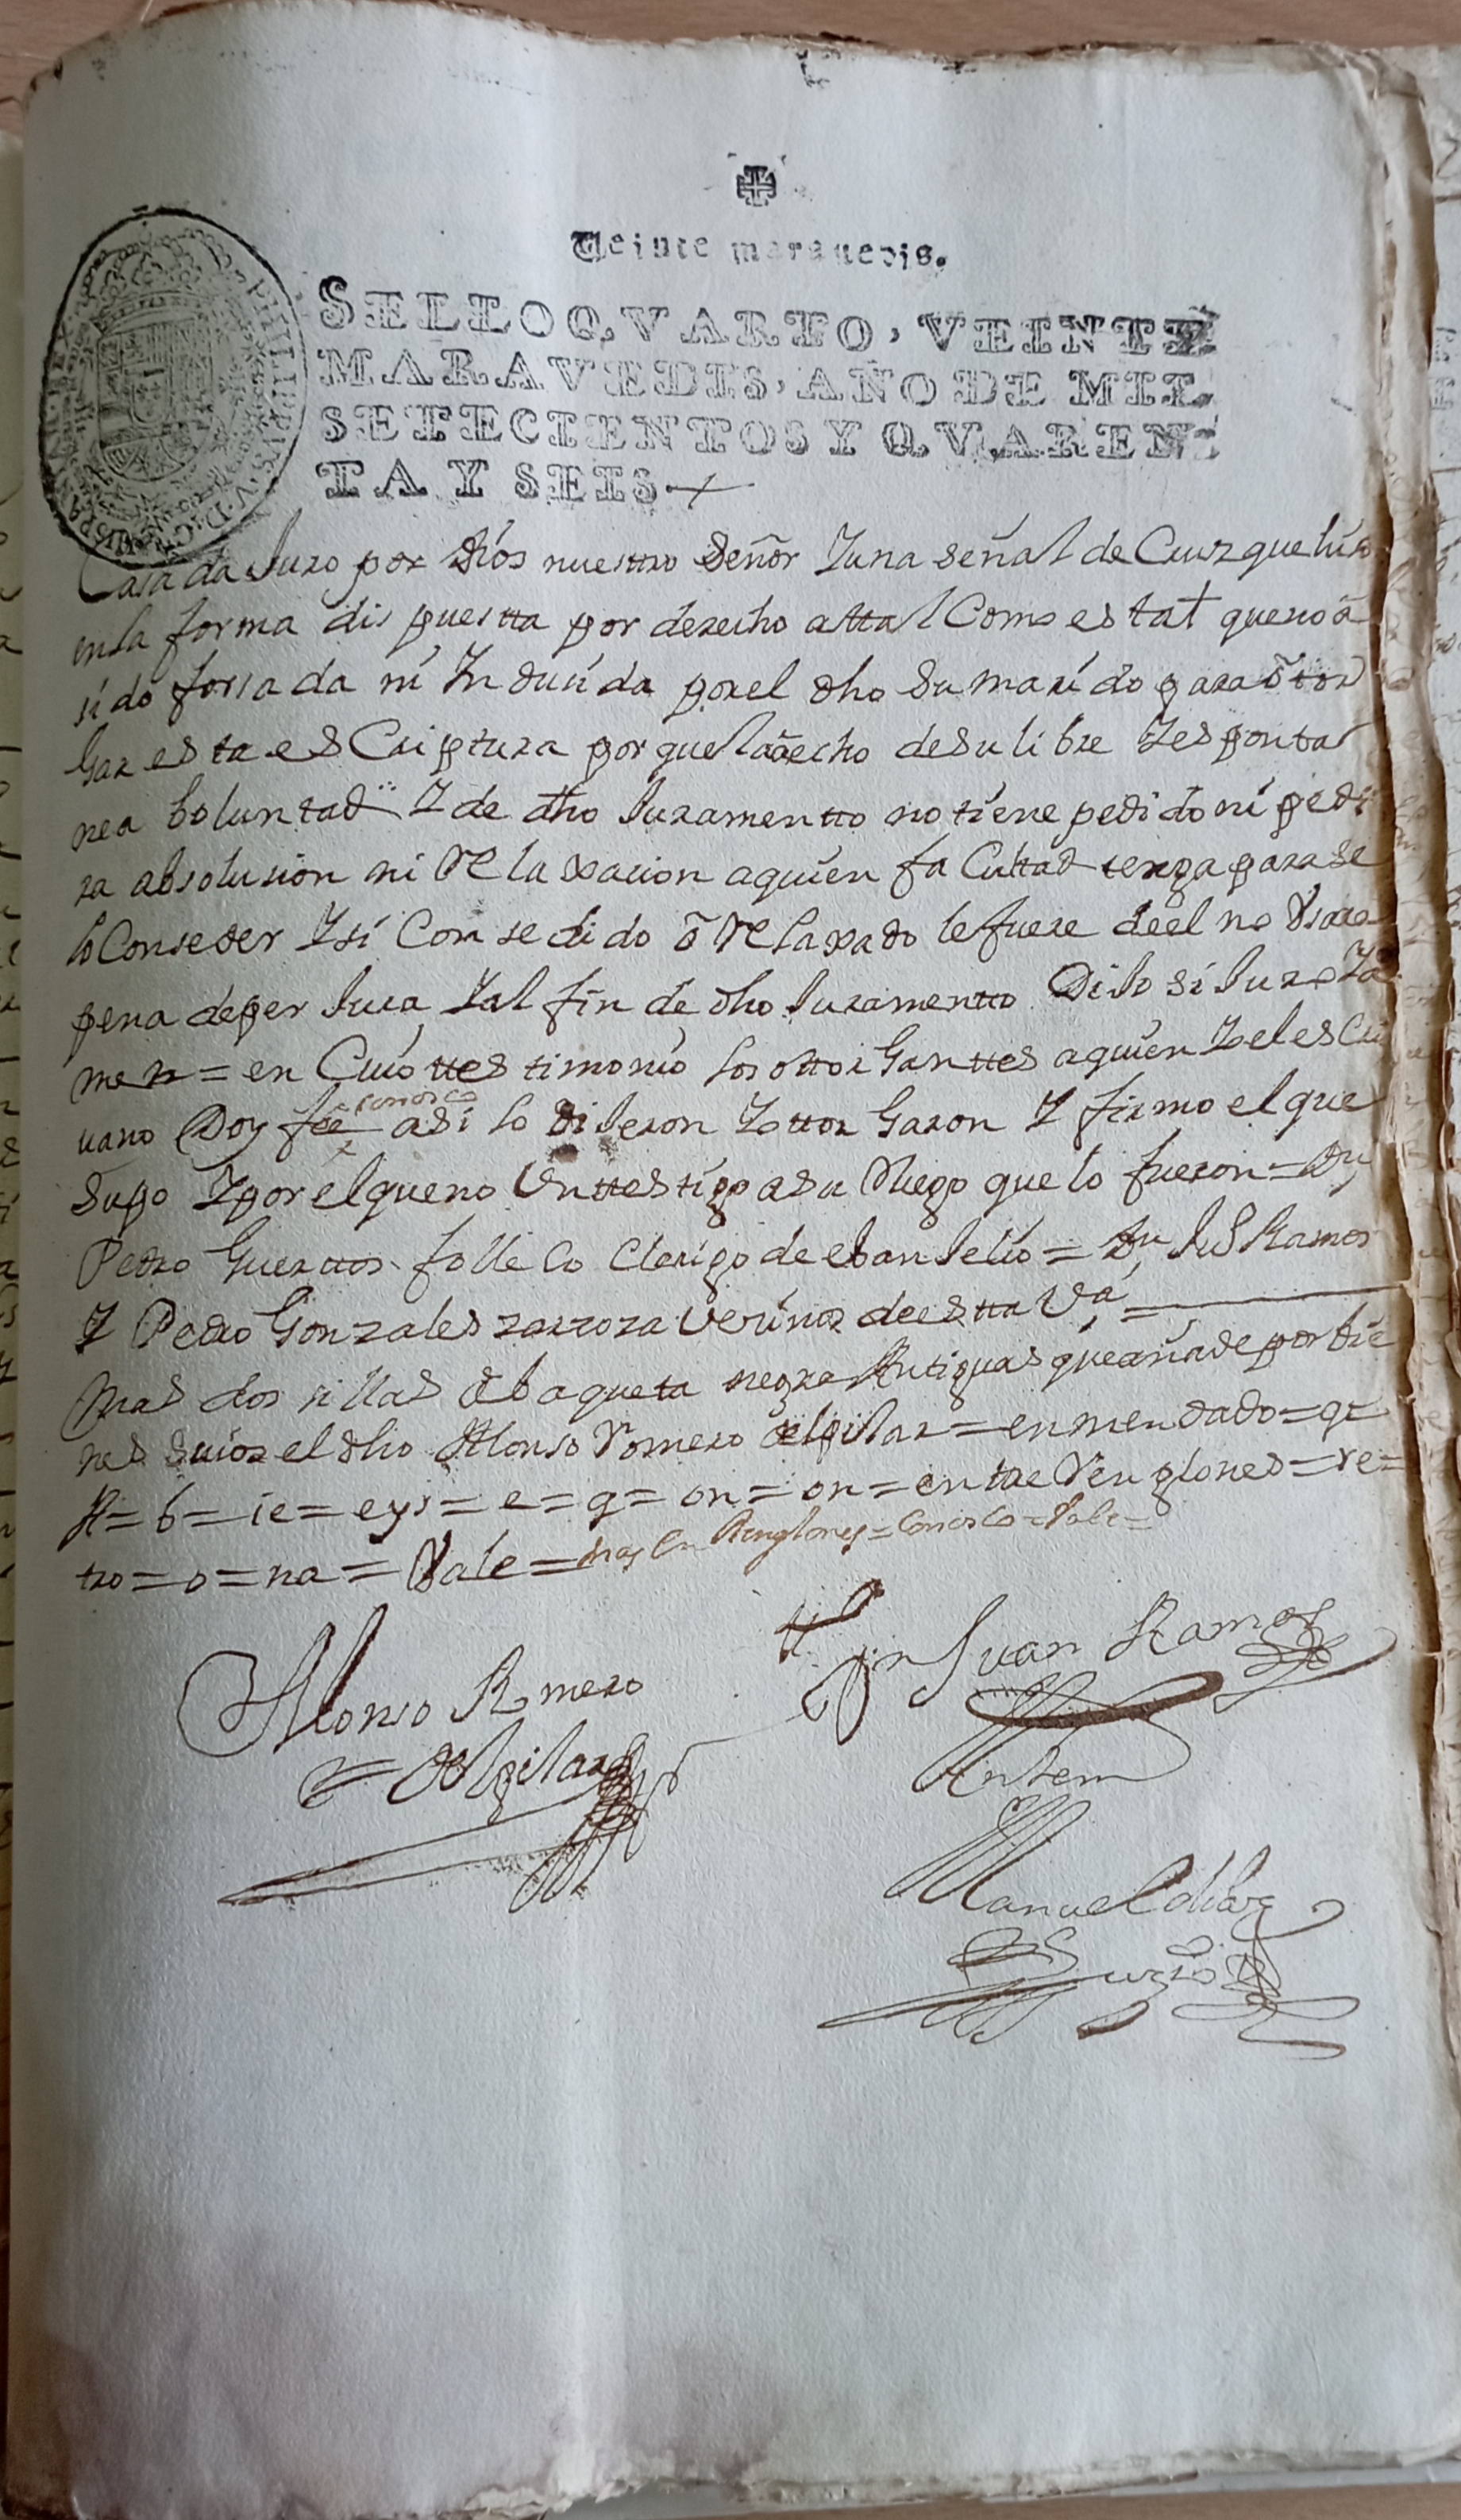 Veinte maravedis.
SELLO QVARTO, VEINTE
MARAVEDIS, AÑO DE MIL
SETECIENTOS Y QVAREN
TA Y SEIS
PHILIPPUS V D G HISPANIAR REX
Casada Juro por Dios nuesttro Señor Y una señal de Cruz que hiso
en la forma dispuestta por derecho attal Como es tal que no a
sido forsada ni Ynducida por el dho su marido para otor
Gar esta esCriptura por que la a echo de su libre Y esponta
nea boluntad Y de dho Juramentto no tiene pedido ni pedi
ra absolusion ni Relaxacion a quien faCultad tenga para se
lo Conseder Y si Consedido o Relaxado le fuere de el no Vsara
pena de perJura Y al fin de dho Juramentto DiJo si Juro Y a
men = en Cuio ttestimonio los ottorGanttes a quien Yo el esCri
uano Doy fee conosco asi lo diJeron Y ottorGaron Y firmo el que
supo Y por el que no Vn ttestigo a su Ruego que lo fueron = Dn
Pedro Guerttos folleCo Clerigo de ebanJelio = Dn JuS Ramos
Y Pedro Gonzales zarzoza Vecinos de estta Va =
Mas dos sillas de baqueta negra Antiguas que añade por bie
nes suios el dho Alonso Romero del pilar = enmendado = ge =
A = b = ie = eys = e = g = on = on = entre Renglones = re =
tro = o = na = Vale = mas En Renglones = Conosco = Vale =
Alonso Romero
del pilar
tt.o
Dn Juan Ramos
Antem
Manuel dias